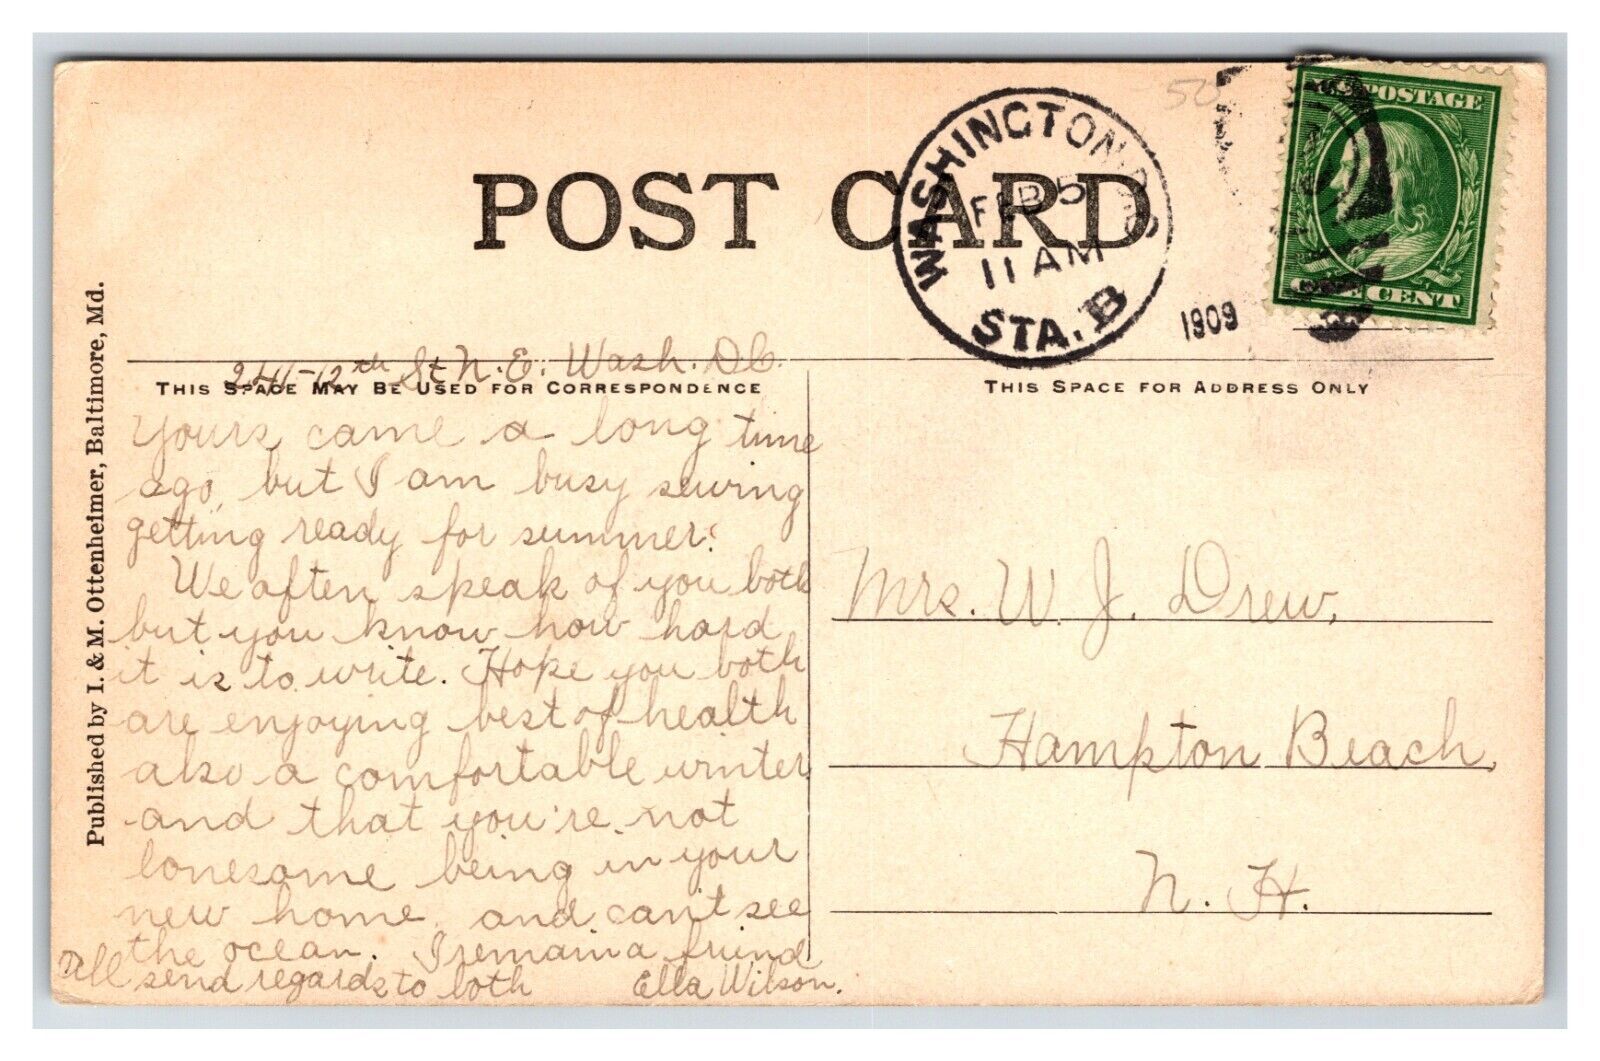 50
POST CARD
WASHINGTON, D.C.
FEB 5
11 AM
STA. B
1909
U.S. POSTAGE
ONE CENT
Published by I. & M. Ottenheimer, Baltimore, Md.
12th St N. E. Wash. D.C.
THIS SPACE MAY BE USED FOR CORRESPONDENCE
THIS SPACE FOR ADDRESS ONLY
Yours came a long time
ago, but I am busy sewing
getting ready for summer.
We often speak of you both
but you know how hard
it is to write. Hope you both
are enjoying best of health
also a comfortable winter
and that you're not
lonesome being in your
new home and can't see
the ocean. I remain a friend
All send regards to both Ella Wilson.
Mrs. W. J. Drew,
Hampton Beach,
N. H.